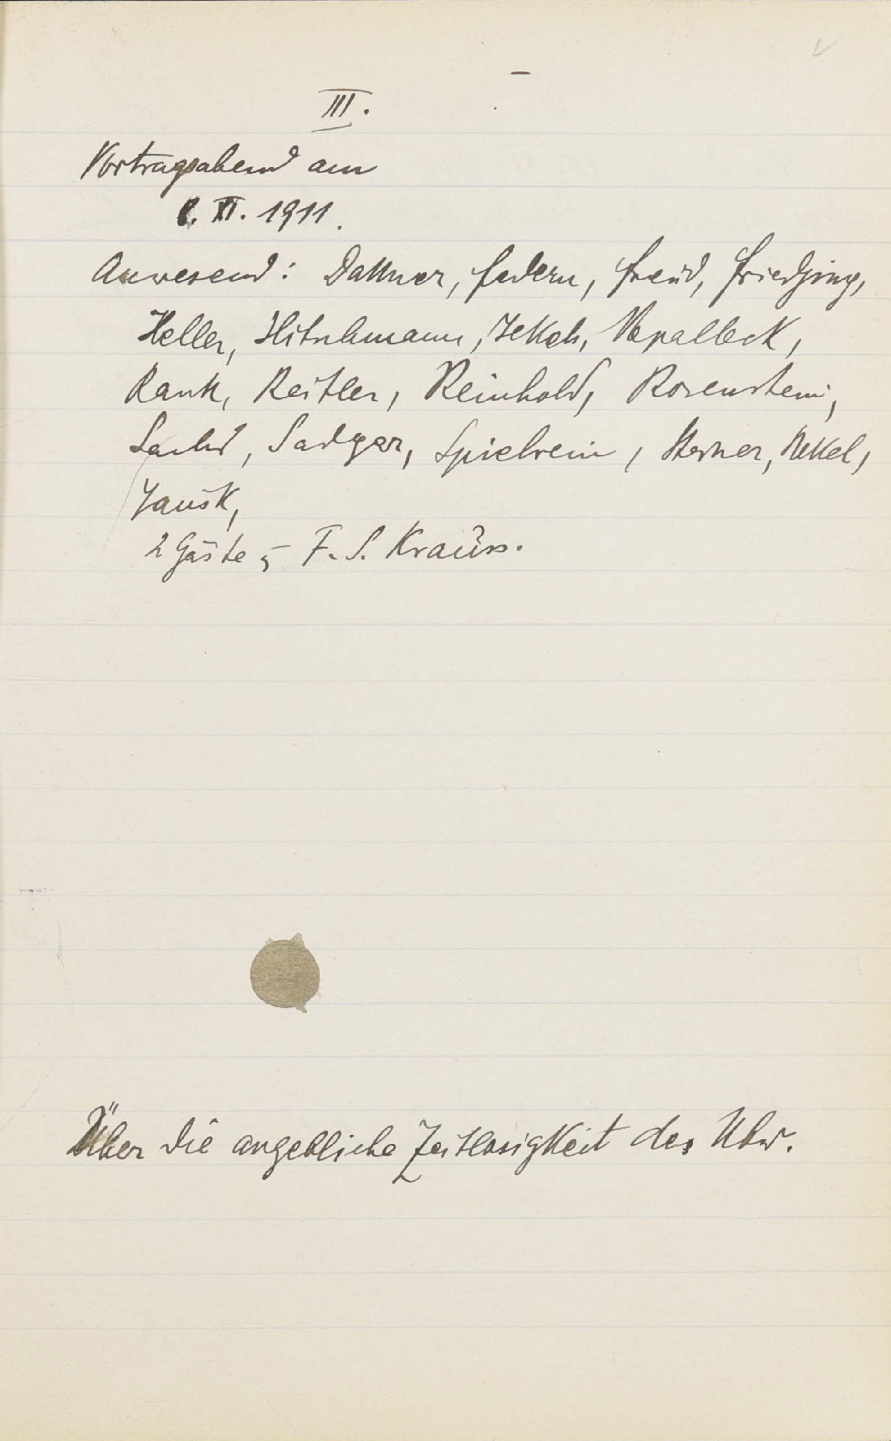 III.
Vortragsabend am
8. XI. 1911.
Anwesend: Dattner, Federn, Freud, Friedjung,
Heller, Hitschmann, Jekels,
Rank, Reitler, Reinhold, Rosenstein,
Sachs, Sadger, Spielrein, Steiner, Stekel,
Tausk,
2 Gäste, F. S. Krauss.
Über die angebliche Zeitlosigkeit des Ubw.